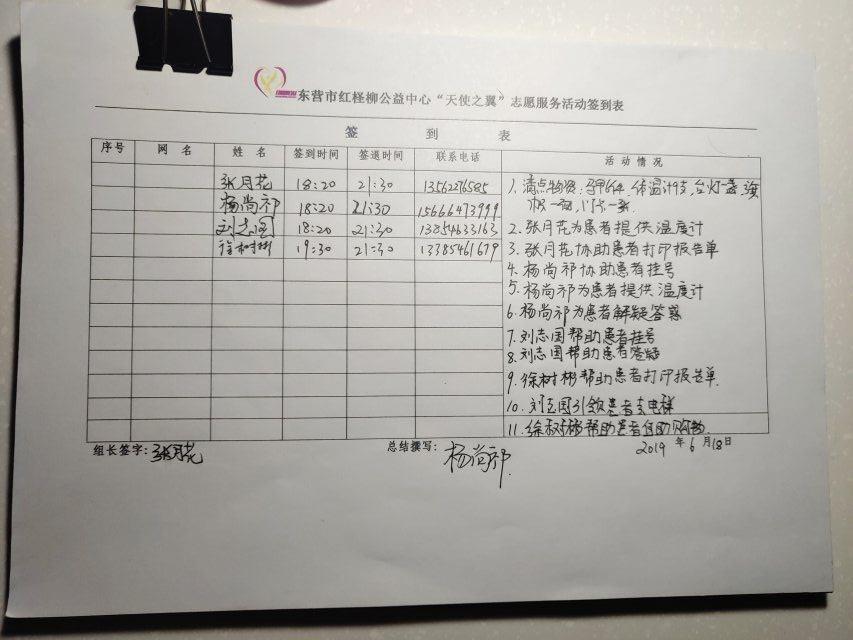 东营市红柽柳公益中心“天使之翼”志愿服务活动签到表
签 到 表
序号 网 名 姓 名 签到时间 签退时间 联系电话 活 动 情 况
张月花 18:20 21:30
杨尚祁 18:20 21:30 15666473999
刘志国 18:20 21:30 13854633163
徐树彬 19:30 21:30 13385461679
1. 清点物资: 体温计9支, 台灯一盏,
一张
2. 张月花为患者提供温度计
3. 张月花协助患者打印报告单
4. 杨尚祁协助患者挂号
5. 杨尚祁为患者提供温度计
6. 杨尚祁为患者解疑答惑
7. 刘志国帮助患者挂号
8. 刘志国帮助患者答疑
9. 徐树彬帮助患者打印报告单.
10. 刘志国引领患者去电梯
11. 徐树彬帮助患者自助购物.
组长签字: 张月花 总结撰写: 杨尚祁 2019 年 6 月 18 日